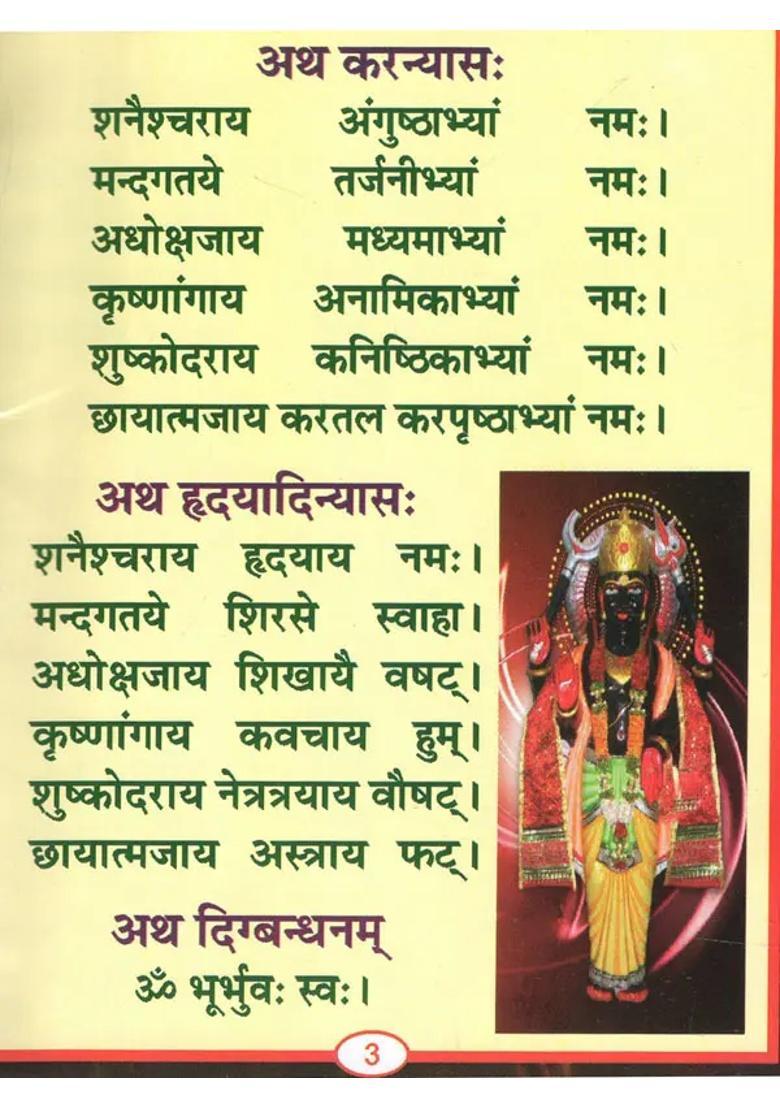 अथ करन्यासः
शनैश्चराय अंगुष्ठाभ्यां नमः।
मन्दगतये तर्जनीभ्यां नमः।
अधोक्षजाय मध्यमाभ्यां नमः।
कृष्णांगाय अनामिकाभ्यां नमः।
शुष्कोदराय कनिष्ठिकाभ्यां नमः।
छायात्मजाय करतल करपृष्ठाभ्यां नमः।
अथ हृदयादिन्यासः
शनैश्चराय हृदयाय नमः।
मन्दगतये शिरसे स्वाहा।
अधोक्षजाय शिखायै वषट्।
कृष्णांगाय कवचाय हुम्।
शुष्कोदराय नेत्रत्रयाय वौषट्।
छायात्मजाय अस्त्राय फट्।
अथ दिग्बन्धनम्
ॐ भूर्भुवः स्वः।
3